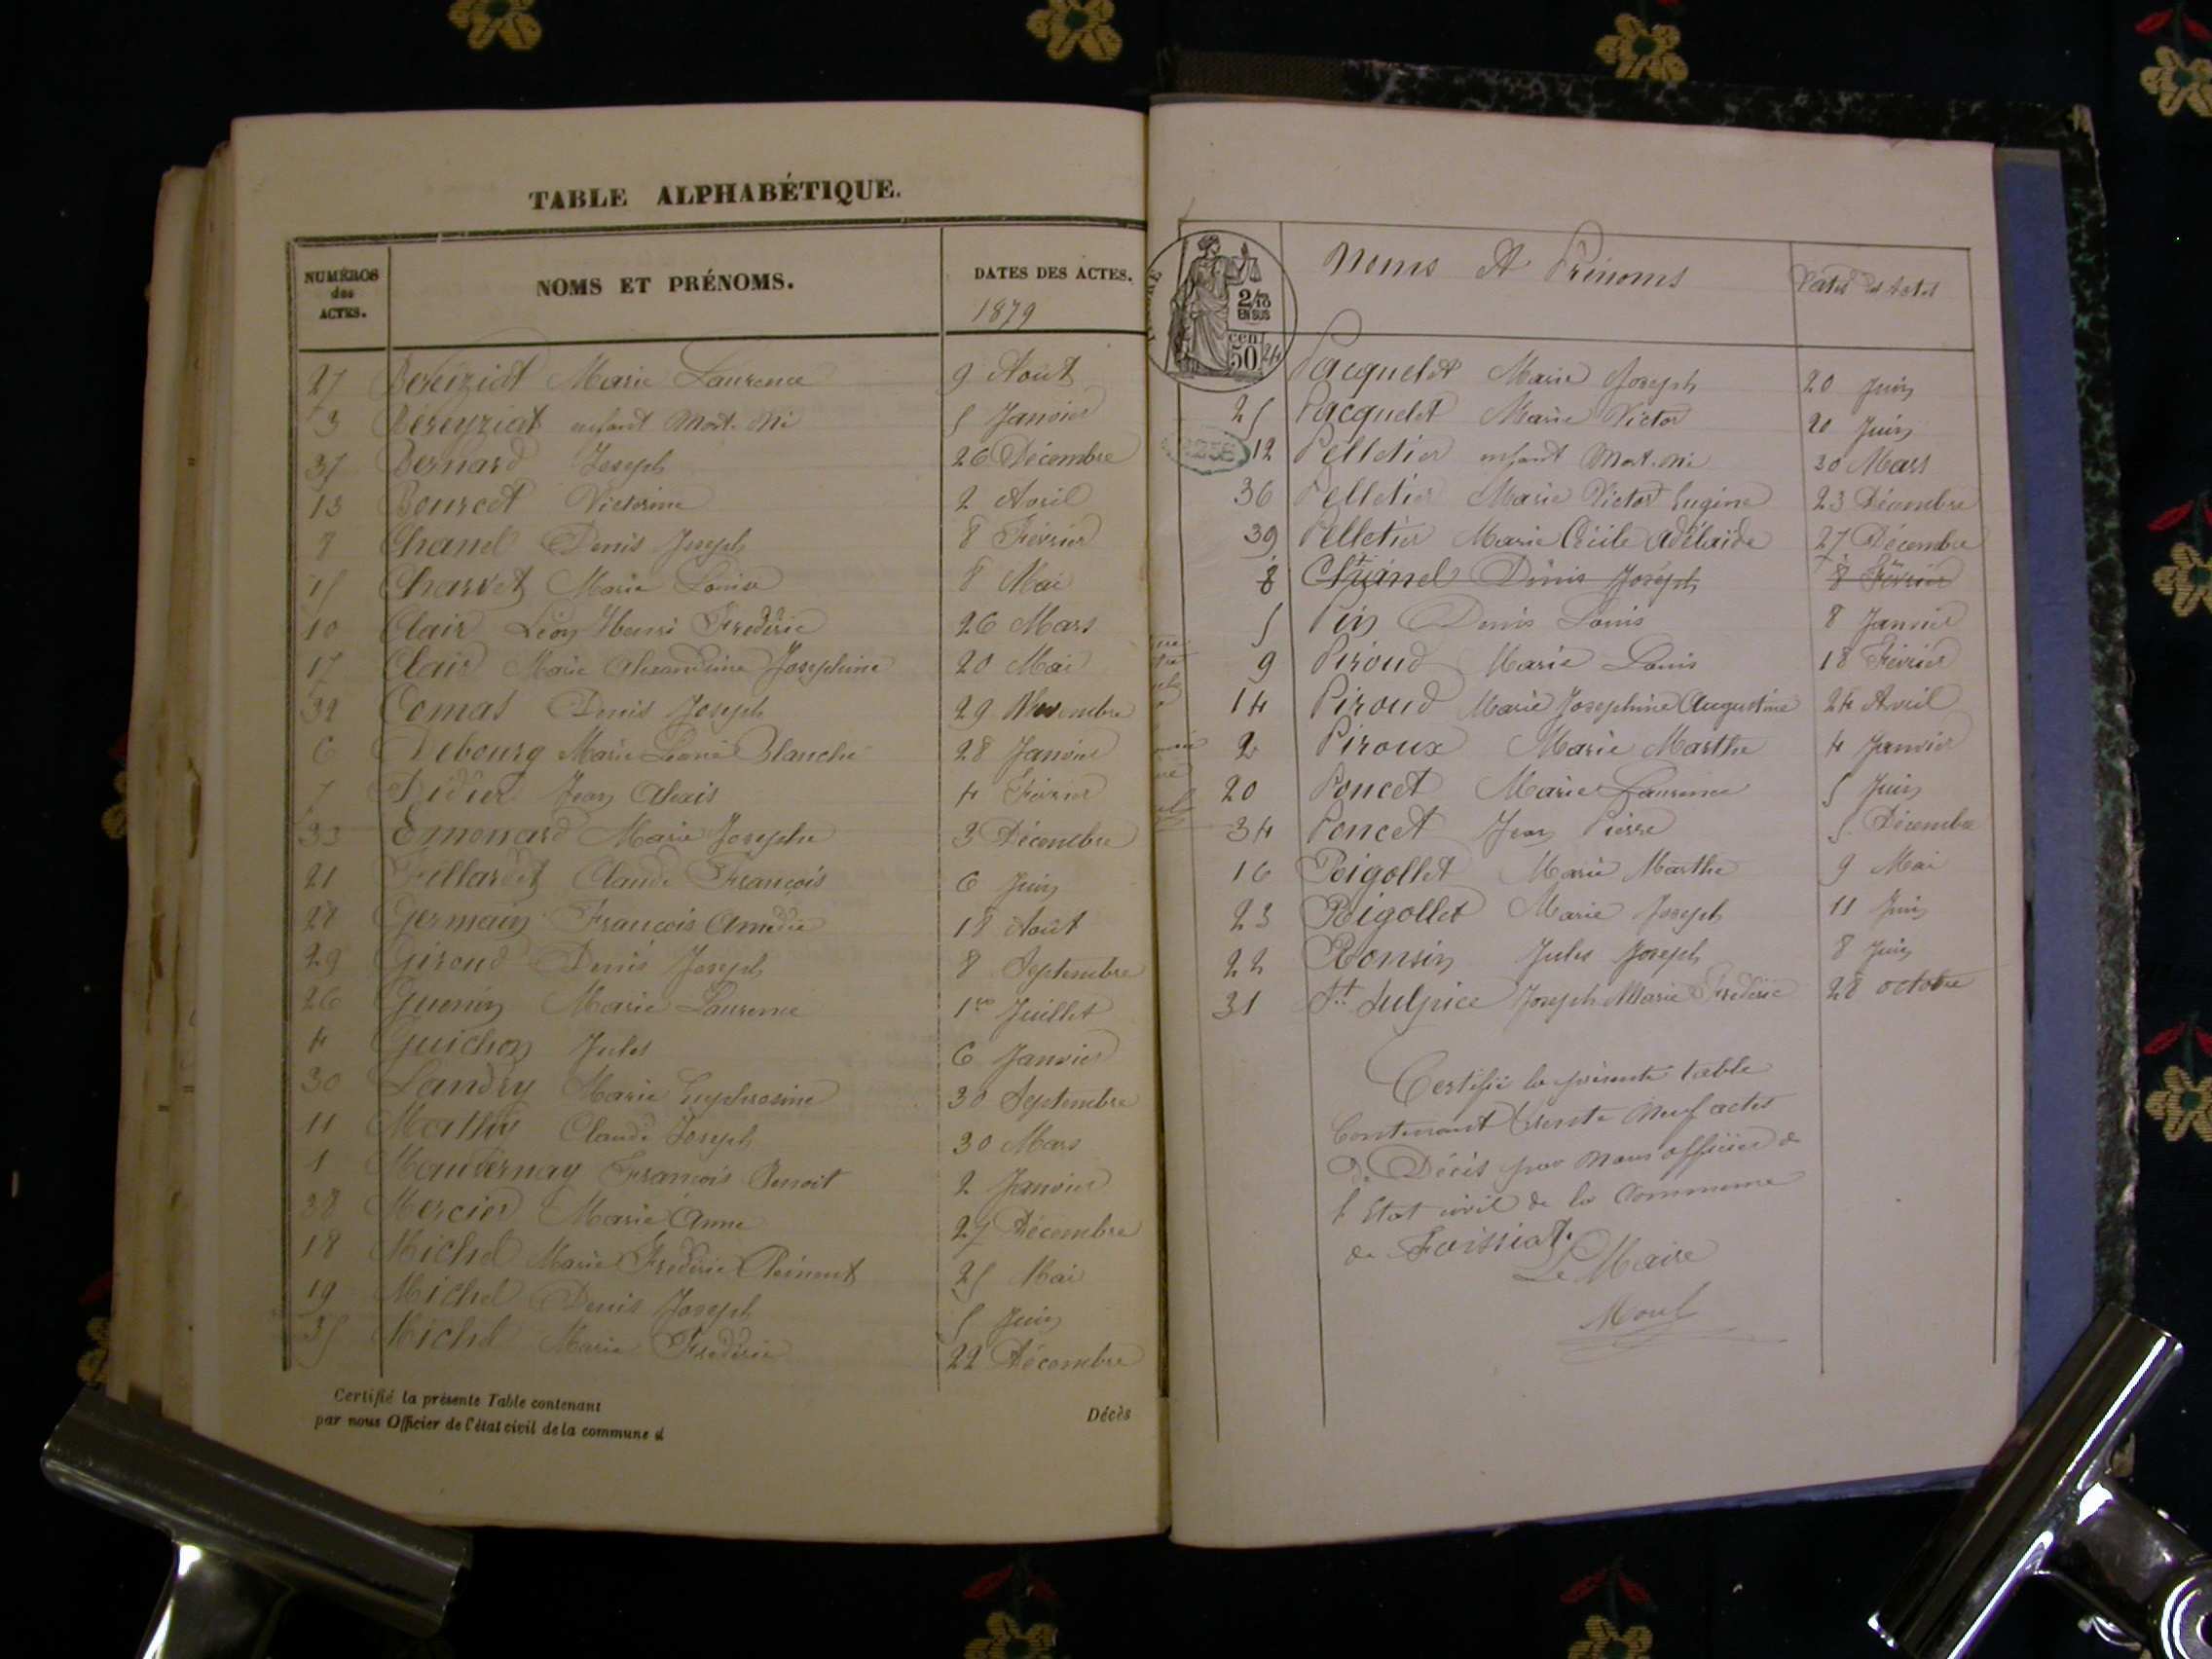 TABLE ALPHABÉTIQUE.
NUMÉROS des ACTES. NOMS ET PRÉNOMS. DATES DES ACTES.
1879
27 Bereiziat Marie Laurence 9 Août
3 Béreyziat enfant Mort-Né 5 Janvier
37 Bernard Joseph 26 Décembre
13 Bourcet Victorine 2 Avril
8 Chanel Denis Joseph 8 Février
15 Charvet Marie Louise 8 Mai
10 Clair Léon Henri Frédéric 26 Mars
17 Clair Marie Alexandrine Josephine 20 Mai
32 Comas Denis Joseph 29 Novembre
6 Debourg Marie Léonie Blanche 28 Janvier
7 Didier Jean Alexis 4 Février
33 Emonard Marie Josephe 3 Décembre
21 Fillardet Claude François 6 Juin
28 Germain François Amédée 18 Août
29 Giroud Denis Joseph 8 Septembre
26 Guenin Marie Laurence 1er Juillet
4 Guichon Jules 6 Janvier
30 Landry Marie Euphrosine 30 Septembre
11 Mathy Claude Joseph 30 Mars
1 Mauternay François Benoit 2 Janvier
38 Mercier Marie Anne 27 Décembre
18 Michel Marie Frédéric Clément 25 Mai
19 Michel Denis Joseph 5 Juin
35 Michel Marie Frédéric 22 Décembre
Certifié la présente Table contenant Décès
par nous Officier de l'état civil de la commune d
Noms et Prénoms Dates des Actes
2/10 EN SUS
50 cen
24 Pacquelet Marie Joseph 20 Juin
25 Pacquelet Marie Victor 20 Juin
12 Pelletier enfant Mort-Né 30 Mars
36 Pelletier Marie Victor Eugène 23 Décembre
39 Pelletier Marie Cécile Adélaïde 27 Décembre
8 Chanel Denis Joseph 8 Février
5 Pin Denis Louis 8 Janvier
9 Piroud Marie Louis 18 Février
14 Piroud Marie Josephine Augustine 24 Avril
2 Piroux Marie Marthe 4 Janvier
20 Poncet Marie Laurence 5 Juin
34 Poncet Jean Pierre 5 Décembre
16 Rigollet Marie Marthe 9 Mai
23 Rigollet Marie Joseph 11 Juin
22 Ronsin Jules Joseph 8 Juin
31 St Sulpice Joseph Marie Frédéric 28 octobre
Certifié la présente table
Contenant trente Neuf actes
de Décès par Nous officier de
l'Etat civil de la Commune
de Foissiat.
Le Maire